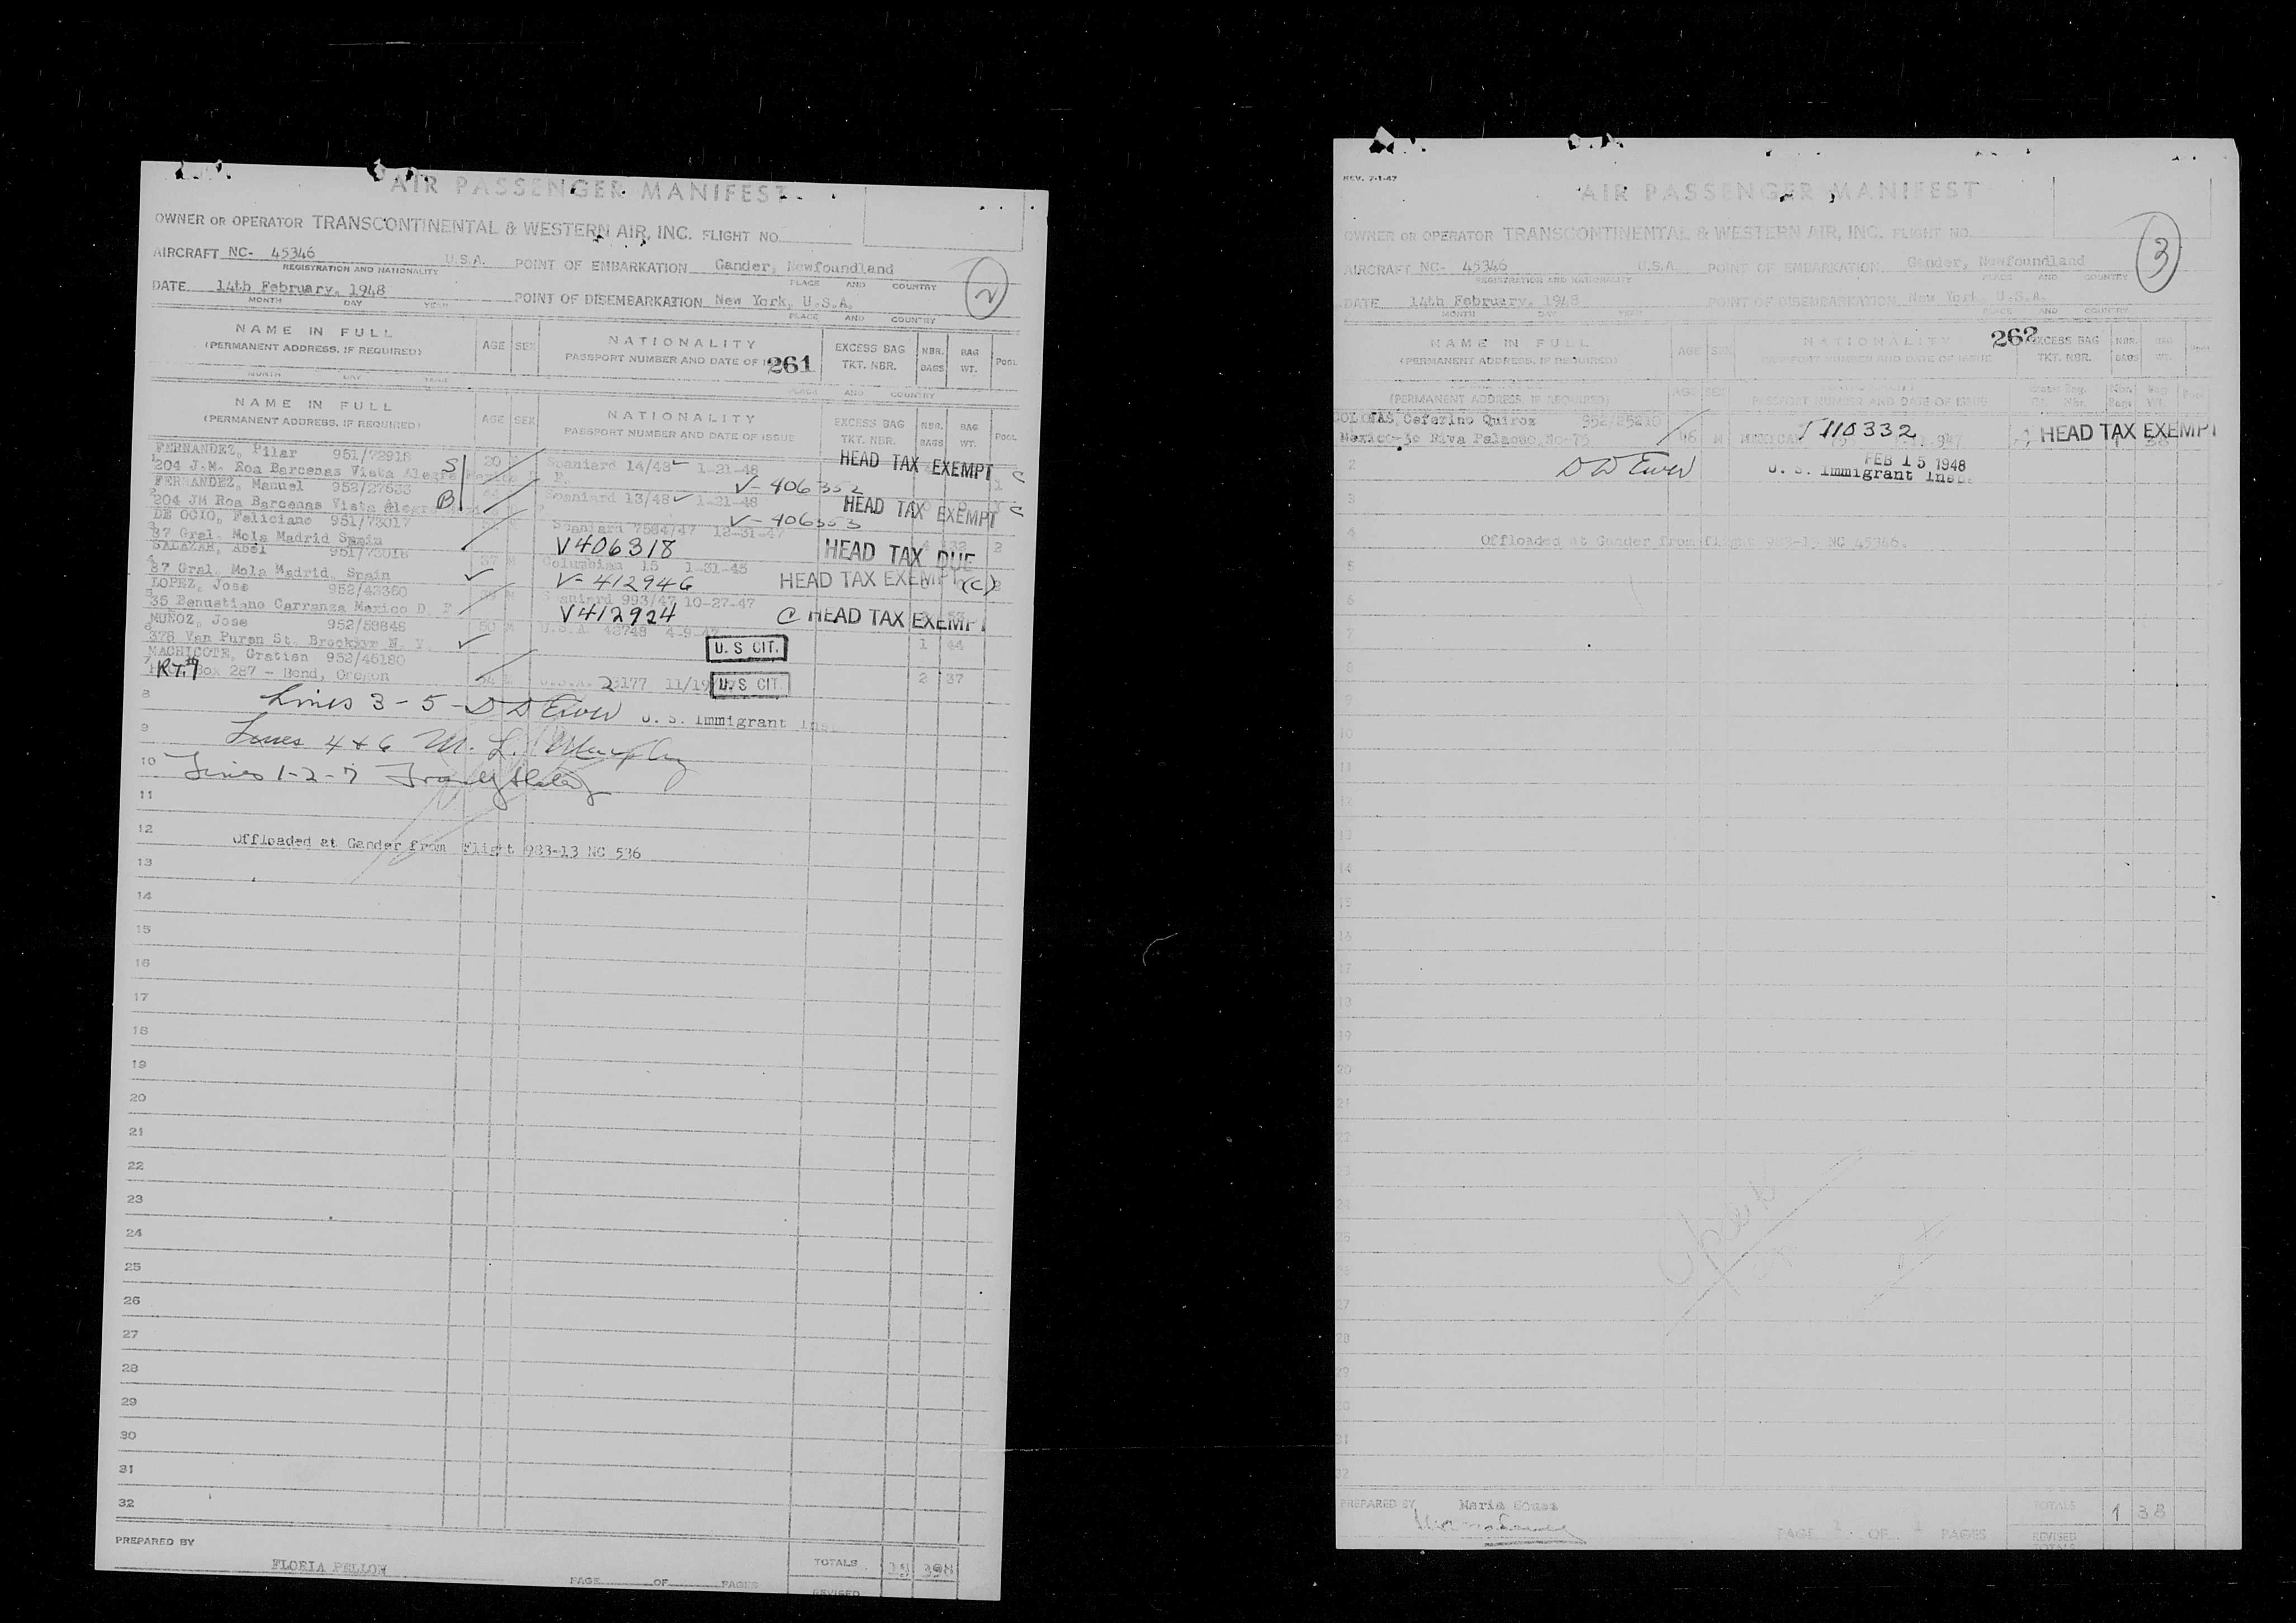 AIR PASSENGER MANIFEST
OWNER OR OPERATOR TRANSCONTINENTAL & WESTERN AIR, INC. FLIGHT NO.
AIRCRAFT NC- 45346 U.S.A. POINT OF EMBARKATION Gander, Newfoundland
REGISTRATION AND NATIONALITY PLACE AND COUNTRY
2
DATE 14th February, 1948 POINT OF DISEMBARKATION New York, U.S.A.
MONTH DAY YEAR PLACE AND COUNTRY
NAME IN FULL AGE SEX NATIONALITY EXCESS BAG NBR. BAG POOL
(PERMANENT ADDRESS, IF REQUIRED) PASSPORT NUMBER AND DATE OF 261 TKT. NBR. BAGS WT.
MONTH DAY YEAR PLACE AND COUNTRY
NAME IN FULL AGE SEX NATIONALITY EXCESS BAG NBR. BAG POOL
(PERMANENT ADDRESS, IF REQUIRED) PASSPORT NUMBER AND DATE OF ISSUE TKT. NBR. BAGS WT.
FERNANDEZ, Pilar 951/72918 S 20 Spaniard 14/48 1-21-48 HEAD TAX EXEMPT C
1 204 J.M. Roa Barcenas Vista Alegre V-406352
FERNANDEZ, Manuel 952/27633 B Spaniard 13/48 1-21-48 HEAD TAX EXEMPT C
2 204 JM Roa Barcenas Vista Alegre V-406353
DE OCIO, Feliciano 951/73017 Spaniard 7584/47 12-31-47 2
3 37 Gral. Mola Madrid Spain V406318 HEAD TAX DUE
SALAZAR, Abel 951/73018 37 M Columbian 15 1-31-45
4 37 Gral. Mola Madrid, Spain V-412946 HEAD TAX EXEMPT (C)
LOPEZ, Jose 952/43380 39 M Spaniard 993/47 10-27-47
5 35 Benustiano Carranza Mexico D. F V412924 C HEAD TAX EXEMPT
MUÑOZ, Jose 952/58848 50 M U.S.A. 42748 4-9-47
6 378 Van Puren St. Brooklyn N. Y. U. S CIT. 1 44
MACHICOTE, Gratien 952/45180
7 RT.#1 Box 287 - Bend, Oregon U.S.A. 23177 11/19 U. S CIT. 2 37
8 Lines 3-5- D D Ewer U. S. Immigrant Insp.
9 Lines 4+6 M. L. Murphy
10 Lines 1-2-7
11
12
Offloaded at Gander from Flight 983-13 NC 536
13
14
15
16
17
18
19
20
21
22
23
24
25
26
27
28
29
30
31
32
PREPARED BY
FLORIA PELLON PAGE OF PAGES TOTALS
REVISED
REV. 7-1-47
AIR PASSENGER MANIFEST
OWNER OR OPERATOR TRANSCONTINENTAL & WESTERN AIR, INC. FLIGHT NO.
3
AIRCRAFT NC- 45346 U.S.A. POINT OF EMBARKATION Gander, Newfoundland
REGISTRATION AND NATIONALITY PLACE AND COUNTRY
DATE 14th February, 1948 POINT OF DISEMBARKATION New York, U.S.A.
MONTH DAY YEAR PLACE AND COUNTRY
NAME IN FULL AGE SEX NATIONALITY 262 EXCESS BAG NBR. BAG POOL
(PERMANENT ADDRESS, IF REQUIRED) PASSPORT NUMBER AND DATE OF ISSUE TKT. NBR. BAGS WT.
(PERMANENT ADDRESS, IF REQUIRED) AGE SEX PASSPORT NUMBER AND DATE OF ISSUE
Ceferino Quiroz 952/25210
46 M MEXICAN T110332 HEAD TAX EXEMPT
2 D D Ewer FEB 15 1948
U. S. Immigrant Insp.
3
4 Offloaded at Gander from flight 983-13 NC 45346.
5
6
7
8
9
10
11
12
13
14
15
16
17
18
19
20
21
22
23
24
25
26
27
28
29
30
31
32
PREPARED BY Maria TOTALS 1 38
PAGE 1 OF 1 PAGES REVISED
TOTALS